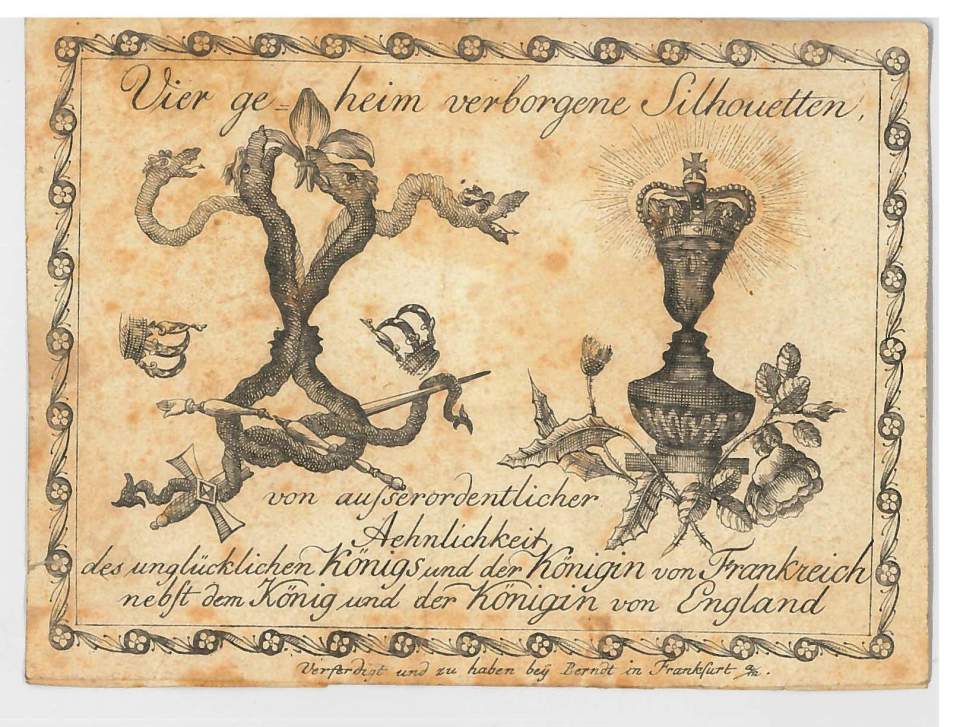 Vier ge= heim verborgene Silhouetten,
von auſserordentlicher
Aehnlichkeit,
des unglücklichen Königs und der Königin von Frankreich
nebſt dem König und der Königin von England
Verferdigt und zu haben beÿ Berndt in Frankfurt a/m.